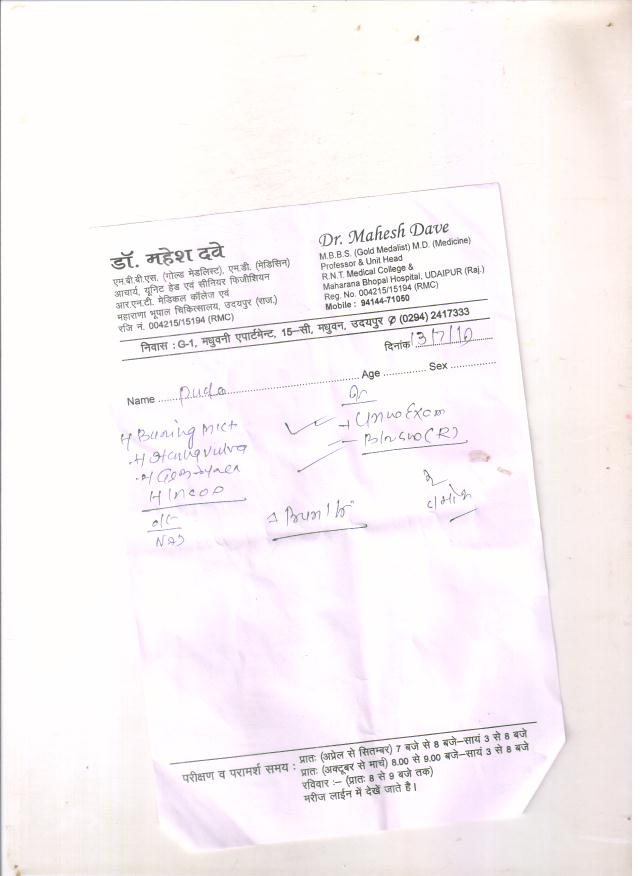 डॉ. महेश दवे
एम.बी.बी.एस. (गोल्ड मेडलिस्ट), एम.डी. (मेडिसिन)
आचार्य, यूनिट हेड एवं सीनियर फिजीशियन
आर.एन.टी. मेडिकल कॉलेज एवं
महाराणा भूपाल चिकित्सालय, उदयपुर (राज.)
रजि नं. 004215/15194 (RMC)
Dr. Mahesh Dave
M.B.B.S. (Gold Medalist) M.D. (Medicine)
Professor & Unit Head
R.N.T. Medical College &
Maharana Bhopal Hospital, UDAIPUR (Raj.)
Reg. No. 004215/15194 (RMC)
Mobile : 94144-71050
निवास : G-1, मधुवनी एपार्टमेन्ट, 15-सी, मधुवन, उदयपुर ✆ (0294) 2417333
दिनांक 13/7/10
Name Age Sex
Burning mict
Urine Exam
NAD
परीक्षण व परामर्श समय : प्रातः (अप्रेल से सितम्बर) 7 बजे से 8 बजे-सायं 3 से 8 बजे
प्रातः (अक्टूबर से मार्च) 8.00 से 9.00 बजे-सायं 3 से 8 बजे
रविवार :- (प्रातः 8 से 9 बजे तक)
मरीज लाईन में देखें जाते है।